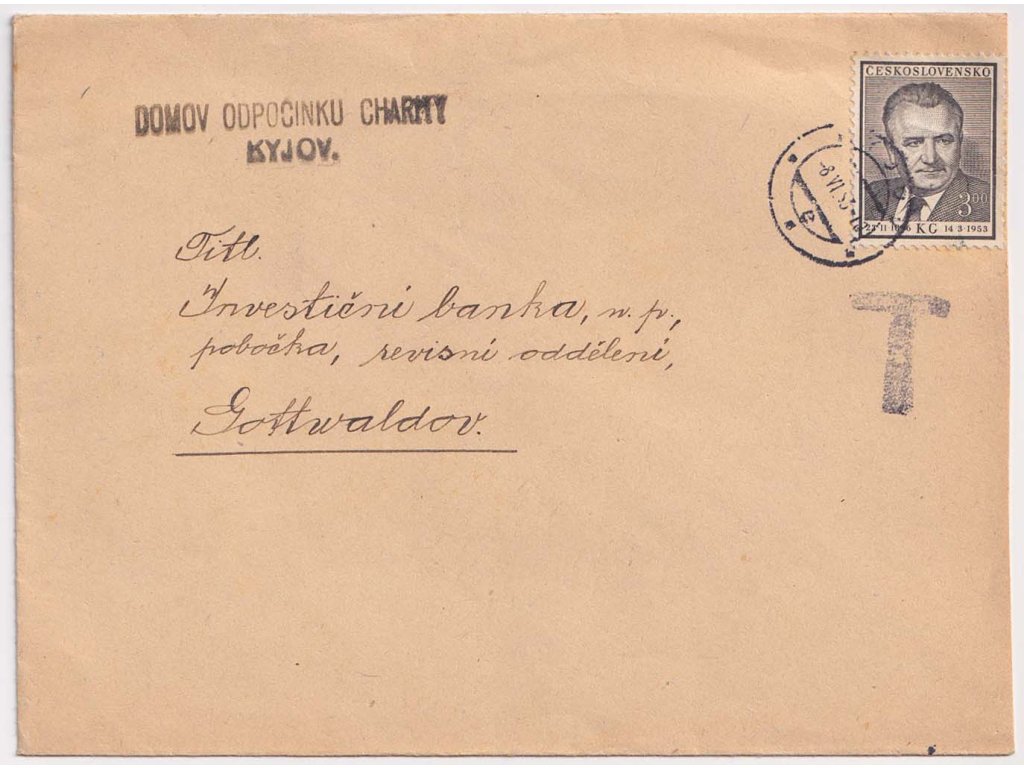 DOMOV ODPOČINKU CHARITY
KYJOV.
ČESKOSLOVENSKO
3 00
23·11·1896 KG 14·3·1953
-8.VI.53-
Titl.
Investiční banka, n. p.,
pobočka, revisní oddělení,
Gottwaldov.
T